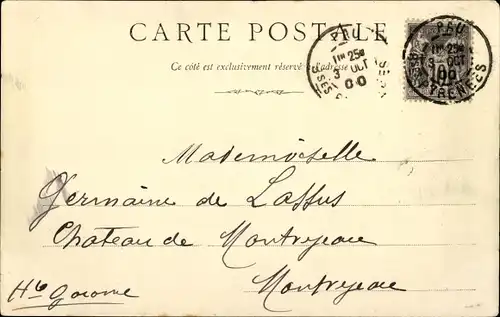 CARTE POSTALE
Ce côté est exclusivement réservé à l'adresse
PAU
1E 25
3 OCT
00
PAU
1E 25
3 OCT
PYRENEES
Mademoiselle
Germaine de Lassus
Chateau de Montrejeau
Montrejeau
Hte Garonne